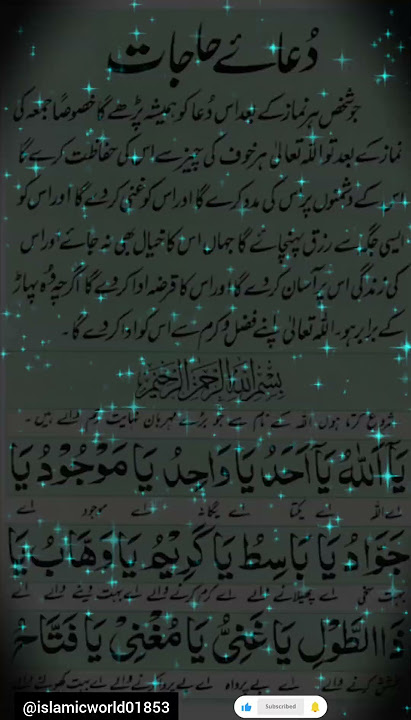 دُعائے حاجات
جو شخص ہر نماز کے بعد اس دُعا کو ہمیشہ پڑھے گا خصوصًا جمعہ کی
نماز کے بعد تو اللہ تعالیٰ ہر خوف کی چیز سے اس کی حفاظت کرے گا
اس کے دشمنوں پر اس کی مدد کرے گا اور اس کو غنی کر دے گا اور اس کو
ایسی جگہ سے رزق پہنچائے گا جہاں اس کا خیال بھی نہ جائے اور اس
کی زندگی اس پر آسان کر دے گا اور اس کا قرضہ ادا کر دے گا اگرچہ وُہ پہاڑ
کے برابر ہو۔ اللہ تعالیٰ اپنے فضل و کرم سے اس کو ادا کر دے گا۔
بِسْمِ اللّٰهِ الرَّحْمٰنِ الرَّحِيْمِ
شروع کرتا ہوں اللہ کے نام سے جو بڑے مہربان نہایت رحم والے ہیں۔
يَآ اَللّٰهُ يَآ اَحَدُ يَا وَاجِدُ يَا مَوْجُوْدُ يَا
اے اللہ اے یکتا اے یگانہ اے موجود اے
جَوَادُ يَا بَاسِطُ يَا كَرِيْمُ يَا وَهَّابُ يَا
بہت سخی اے پھیلانے والے اے کرم کرنے والے اے بہت دینے والے اے
ذَا الطَّوْلِ يَا غَنِيُّ يَا مُغْنِيْ يَا فَتَّاحُ
والے اے بے پرواہ اے بے پرواہ کرنے والے اے بہت کھولنے والے
@islamicworld01853
Subscribed